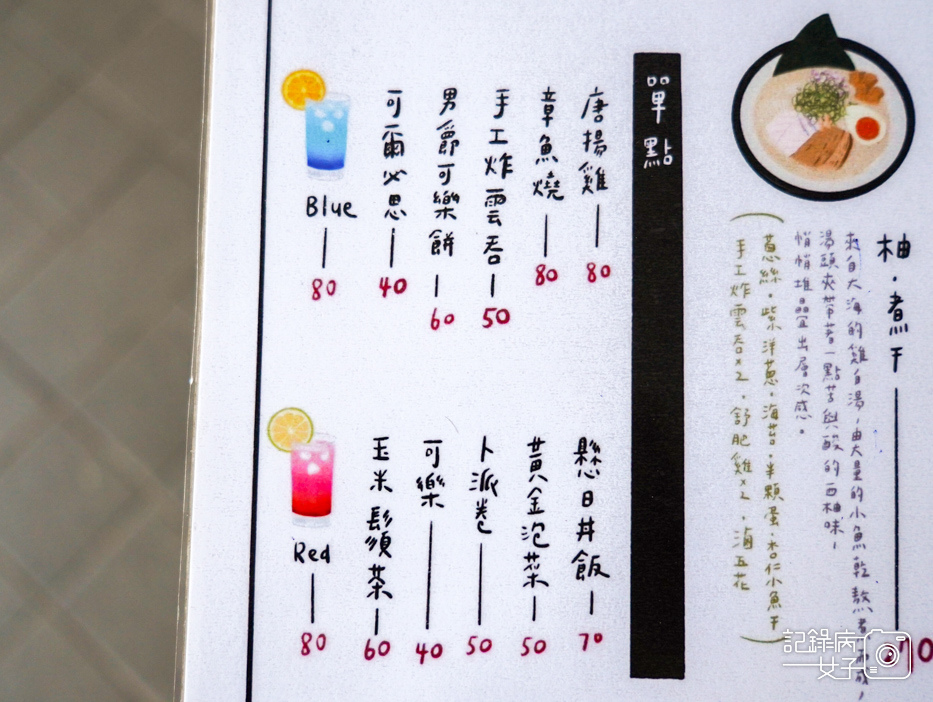 柚·煮干
來自大海的雞白湯，由大量的小魚乾熬煮而成，
湯頭夾帶著一點苦與酸的西柚味，
悄悄堆疊出層次感。
（蔥絲．紫洋蔥．海苔．半顆蛋．杏仁小魚干
手工炸雲吞x2．舒肥雞x2．滷五花）
單點
唐揚雞 80
章魚燒 80
手工炸雲吞 50
男爵可樂餅 60
可爾必思 40
Blue 80
懸日丼飯 70
黃金泡菜 50
卜派卷 50
可樂 40
玉米鬚茶 60
Red 80
記錄病女子